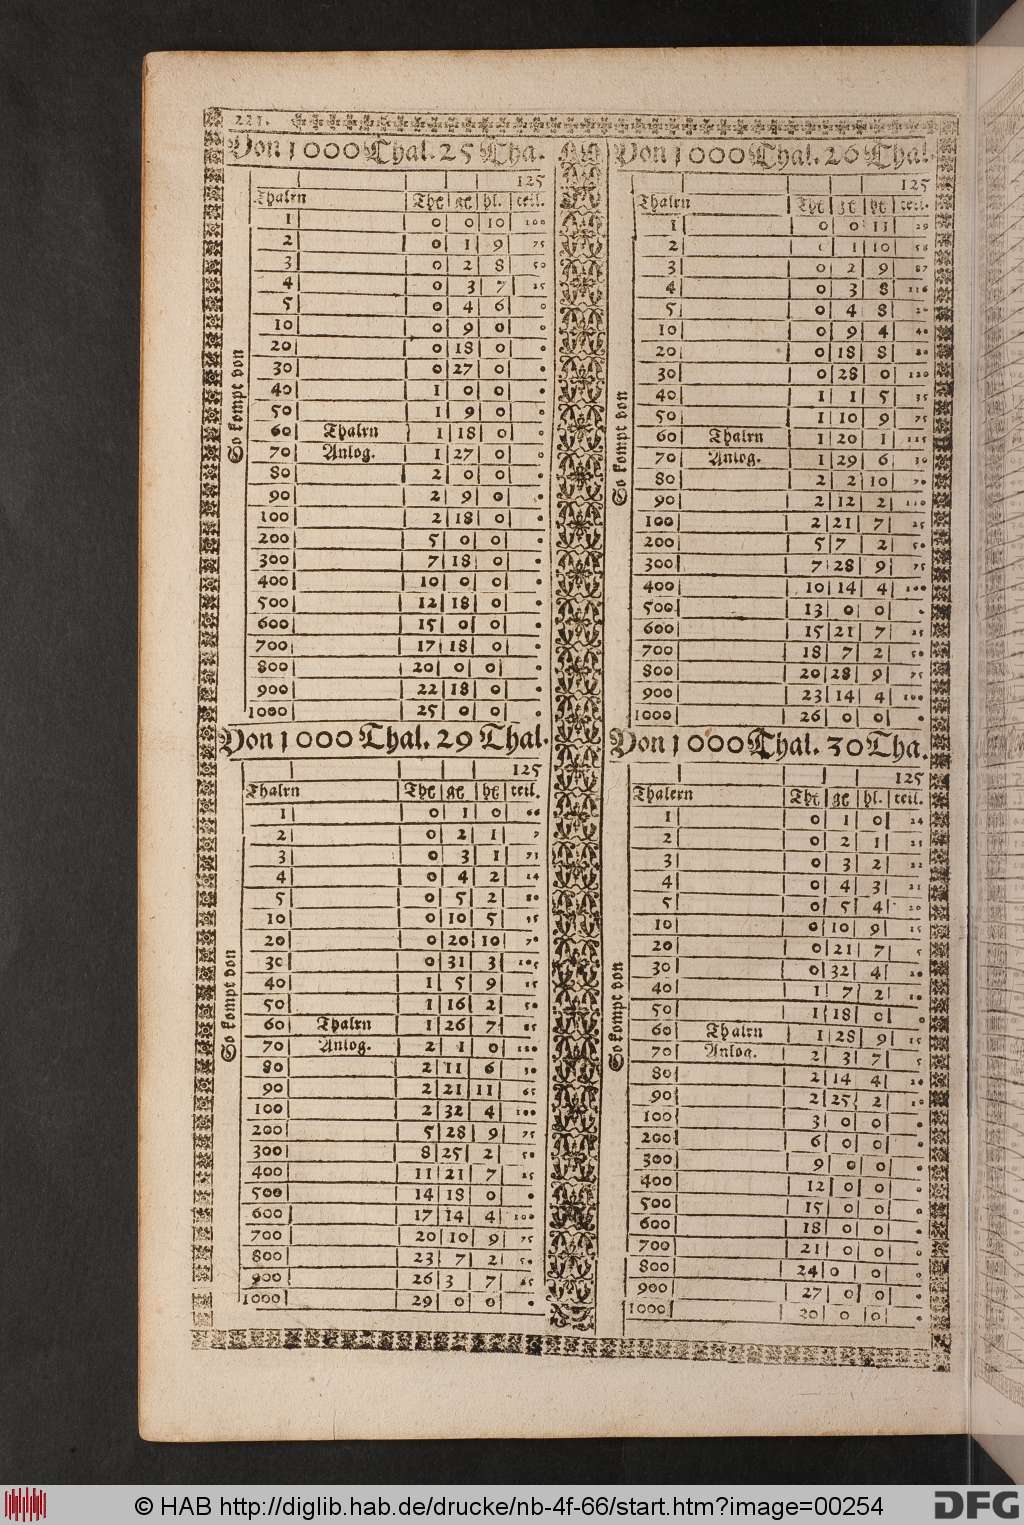 221.
Von 1000 Thal. 25 Tha.
125
Thalrn Thl gl hl. teil.
So kompt von
1 0 0 10 100
2 0 1 9 75
3 0 2 8 50
4 0 3 7 25
5 0 4 6 0
10 0 9 0 0
20 0 18 0 0
30 0 27 0 0
40 1 0 0 0
50 1 9 0 0
60 Thalrn 1 18 0 0
70 Anlog. 1 27 0 0
80 2 0 0 0
90 2 9 0 0
100 2 18 0 0
200 5 0 0 0
300 7 18 0 0
400 10 0 0 0
500 12 18 0 0
600 15 0 0 0
700 17 18 0 0
800 20 0 0 0
900 22 18 0 0
1000 25 0 0 0
Von 1000 Thal. 26 Thal.
125
Thalrn Thl gl hl teil.
So kompt von
1 0 0 11 29
2 1 10 58
3 0 2 9 87
4 0 3 8 116
5 0 4 8 20
10 0 9 4 40
20 0 18 8 80
30 0 28 0 120
40 1 1 5 35
50 1 10 9 75
60 Thalrn 1 20 1 115
70 Anlog. 1 29 6 30
80 2 2 10 70
90 2 12 2 110
100 2 21 7 25
200 5 7 2 50
300 7 28 9 75
400 10 14 4 100
500 13 0 0 0
600 15 21 7 25
700 18 7 2 50
800 20 28 9 75
900 23 14 4 100
1000 26 0 0 0
Von 1000 Thal. 29 Thal.
125
Thalrn Thl gl hl teil.
So kompt von
1 0 1 0 66
2 0 2 1 7
3 0 3 1 73
4 0 4 2 14
5 0 5 2 80
10 0 10 5 35
20 0 20 10 70
30 0 31 3 105
40 1 5 9 15
50 1 16 2 50
60 Thalrn 1 26 7 85
70 Anlog. 2 1 0 120
80 2 11 6 30
90 2 21 11 65
100 2 32 4 100
200 5 28 9 75
300 8 25 2 50
400 11 21 7 25
500 14 18 0 0
600 17 14 4 100
700 20 10 9 75
800 23 7 2 50
900 26 3 7 25
1000 29 0 0 0
Von 1000 Thal. 30 Tha.
125
Thalern Thl gl hl. teil.
So kompt von
1 0 1 0 24
2 0 2 1 23
3 0 3 2 22
4 0 4 3 21
5 0 5 4 20
10 0 10 9 15
20 0 21 7 5
30 0 32 4 20
40 1 7 2 10
50 1 18 0 0
60 Thalrn 1 28 9 15
70 Anlog. 2 3 7 5
80 2 14 4 20
90 2 25 2 10
100 3 0 0 0
200 6 0 0 0
300 9 0 0 0
400 12 0 0 0
500 15 0 0 0
600 18 0 0 0
700 21 0 0 0
800 24 0 0 0
900 27 0 0 0
1000 30 0 0 0
© HAB http://diglib.hab.de/drucke/nb-4f-66/start.htm?image=00254
DFG